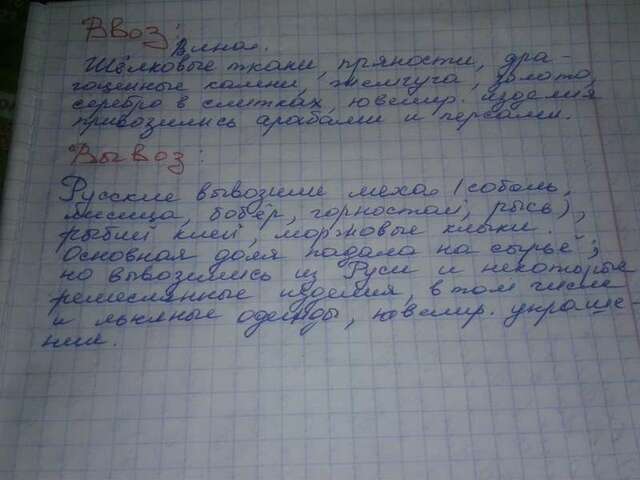 Ввоз:
Вина.
Шёлковые ткани, пряности, дра-
гоценные камни, жемчуга, золото,
серебро в слитках, ювелир. изделия
привозились арабами и персами.
Вывоз:
Русские вывозили меха (соболь,
лисица, бобёр, горностай, рысь),
рыбий клей, моржовые клыки.
Основная доля падала на сырьё;
но вывозились из Руси и некоторые
ремеслянные изделия, в том числе
и льняные одежды, ювелир. украше-
ния.